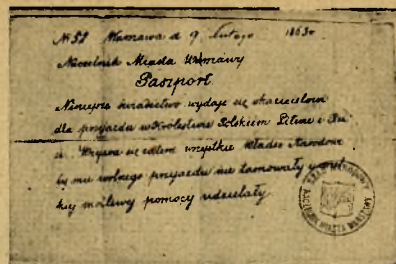 No 52 Warszawa d 9 Lutego 1863 r
Naczelnik Miasta Warszawy
Paszport
Niniejsze świadectwo wydaje się okazicielowi
dla przejazdu w Królestwie Polskiem Litwie i Ru
si. Wzywa się zatem wszystkie Władze Narodowe
by mu wolnego przejazdu nie tamowały i
kiej możliwej pomocy udzielały
RZĄD NARODOWY
NACZELNIK MIASTA WARSZAWY